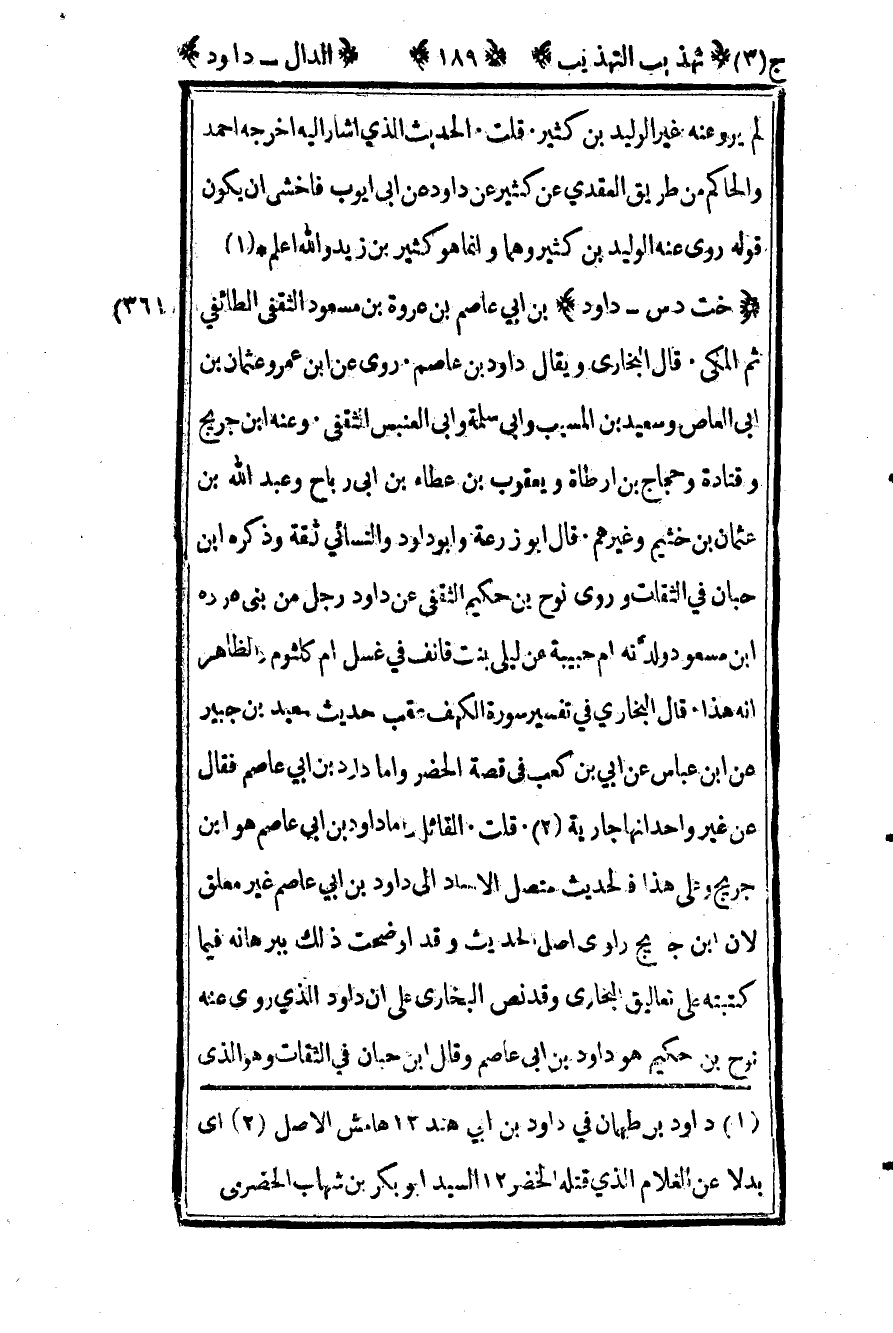 ج(٣) ﴿ تهذيب التهذيب ﴾ ﴿ ١٨٩ ﴾ ﴿ الدال ــ داود ﴾
لم يرو عنه غير الوليد بن كثير ٠ قلت ٠ الحديث الذي اشار اليه اخرجه احمد
والحاكم من طريق العقدي عن كثير عن داود عن ابى ايوب فاخشى ان يكون
قوله روى عنه الوليد بن كثير وهما و انما هو كثير بن زيد والله اعلم * (١)
﴿ خت د س ــ داود ﴾ بن ابي عاصم بن عروة بن مسعود الثقفى الطائفي (٣٦١)
ثم المكي ٠ قال البخارى ويقال داود بن عاصم ٠ روى عن ابن عمر وعثمان بن
ابى العاص وسعيد بن المسيب وابي سلمة وابى العنبس الثقفى ٠ وعنه ابن جريج
وقتادة وحجاج بن ارطاة ويعقوب بن عطاء بن ابى رباح وعبد الله بن
عثمان بن خثيم وغيرهم ٠ قال ابو زرعة وابوداود والنسائي ثقة وذكره ابن
حبان في الثقات و روى نوح بن حكيم الثقفى عن داود رجل من بنى
ابن مسعود ولدته ام حبيبة عن ليلى بنت قانف في غسل ام كلثوم والظاهر
انه هذا ٠ قال البخاري في تفسير سورة الكهف عقب حديث سعيد بن جبير
عن ابن عباس عن ابي بن كعب فى قصة الخضر واما داود بن ابي عاصم فقال
عن غير واحد انها جارية (٢) ٠ قلت ٠ القائل اما داود بن ابى عاصم هو ابن
جريج وعلى هذا فالحديث متصل الاسناد الى داود بن ابي عاصم غير معلق
لان ابن جريج راوى اصل الحديث وقد اوضحت ذلك ببرهانه فيما
كتبته على تعاليق البخارى وقد نص البخارى على ان داود الذي روى عنه
نوح بن حكيم هو داود بن ابى عاصم وقال ابن حبان في الثقات وهو الذى
(١) داود بن طهمان في داود بن ابي هند ١٢ هامش الاصل (٢) اى
بدلا عن الغلام الذي قتله الخضر ١٢ السيد ابو بكر بن شهاب الحضرمى